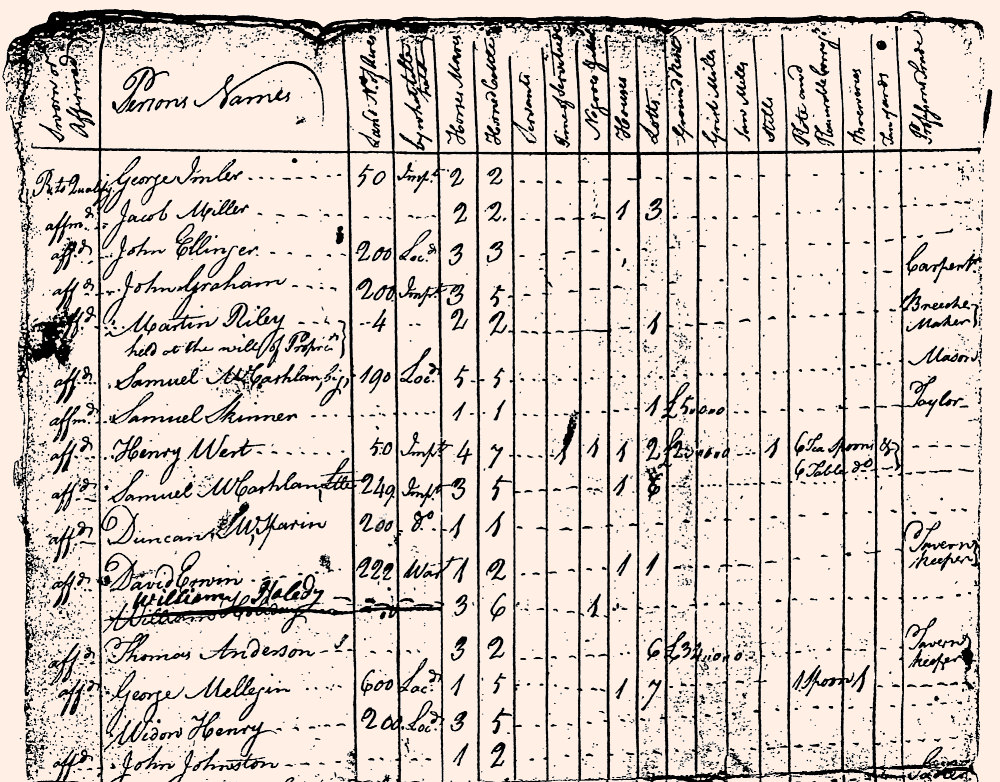 Sworn or Affirmed Persons Names Land No. of Acres by what title held Horses Mares Horned Cattle Servants Time of Servitude Negroes Houses Lotts Ground Rent Grist Mills Saw Mills Stills Plate and Tanyards Profession Trade
George Imler 50 Impt. 2 2
affmd. Jacob Miller 2 2 1 3
affd. John Ellinger 200 Locd. 3 3 Carpentr
affd. John Graham 200 Impt. 3 5 Breeches
affd. Martin Riley 4 2 2 1 Maker
held at the will of Proprier Mason
affd. Samuel McCashlan 190 Locd. 5 5
affmd. Samuel Skinner 1 1 1 £5,,0,,0 Taylor
affd. Henry Wert 50 Impt 4 7 1 1 1 2 1 6 Tea Spoons &
6 Table do.
affd. Samuel McCashlan 249 Impt 3 5 1
affd. Duncan 200 do. 1 1
affd. David Erwin 222 Wart 1 2 1 1 Tavern keeper
William 3 6 1
affd. Thomas Anderson 3 2 6 Tavern keeper
affd. George Mellegin 600 Locd 1 5 1 7 1 Spoon
Widow Henry 200 Locd. 3 5
affd. John Johnston 1 2